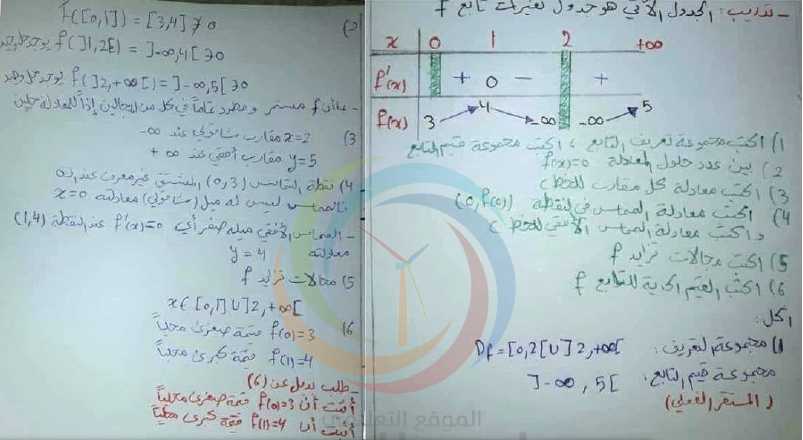 - تدريب: الجدول الآتي هو جدول تغيرات تابع f
x 0 1 2 +∞
f'(x) + 0 - +
f(x) 3 4 -∞ -∞ 5
1) اكتب مجموعة تعريف التابع ، اكتب مجموعة قيم التابع
2) بين عدد حلول المعادلة f(x)=0
3) اكتب معادلة كل مقارب للخط C
4) اكتب معادلة المماس في النقطة (0, f(0))
واكتب معادلة المماس الأفقي للخط C
5) اكتب مجالات تزايد f
6) اكتب القيم الحدية للتابع f
الحل:
1) مجموعة التعريف: Df=[0,2[U]2,+∞[
مجموعة قيم التابع: ]-∞, 5[
(المستقر الفعلي)
2) f([0,1]) = [3,4] ∌ 0
f(]1,2[) = ]-∞,4[ ∋0 يوجد حل وحيد
f(]2,+∞[)=]-∞,5[ ∋0 يوجد حل وحيد
- بما أن f مستمر و مطرد تماماً في كل من المجالين إذاً للمعادلة حلين
3) x=2 مقارب شاقولي عند -∞
y=5 مقارب أفقي عند +∞
4) نقطة التماس (0,3) المشتق غير معرف عند الـ 0
فالمماس ليس له ميل (شاقولي) معادلته x=0
- المماس الأفقي ميله صفر أي f'(x)=0 عند النقطة (1,4)
معادلته y = 4
5) مجالات تزايد f
x∈[0,1]U]2,+∞[
6) f(0)=3 قيمة صغرى محلياً
f(1)=4 قيمة كبرى محلياً
- طلب بديل عن (6)
أثبت أن f(0)=3 قيمة صغرى محلياً
أثبت أن f(1)=4 قيمة كبرى محلياً
الموقع التعليمي